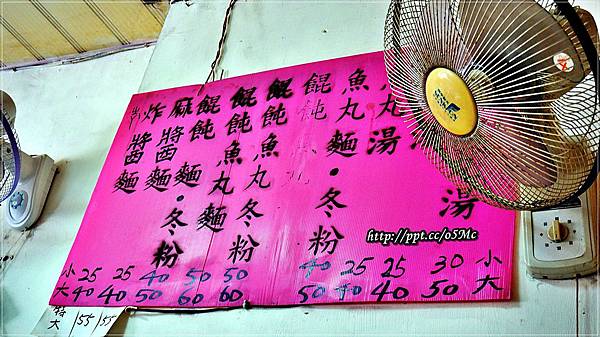 炸醬麵
麻醬麵
餛飩麵・冬粉
餛飩魚丸麵
餛飩魚丸冬粉
餛飩
魚丸麵・冬粉
魚丸湯
湯
小 25 25 40 50 50 40 25 25 30 小
大 40 40 50 60 60 50 40 40 50 大
特大 55 55
http://ppt.cc/o5Mc